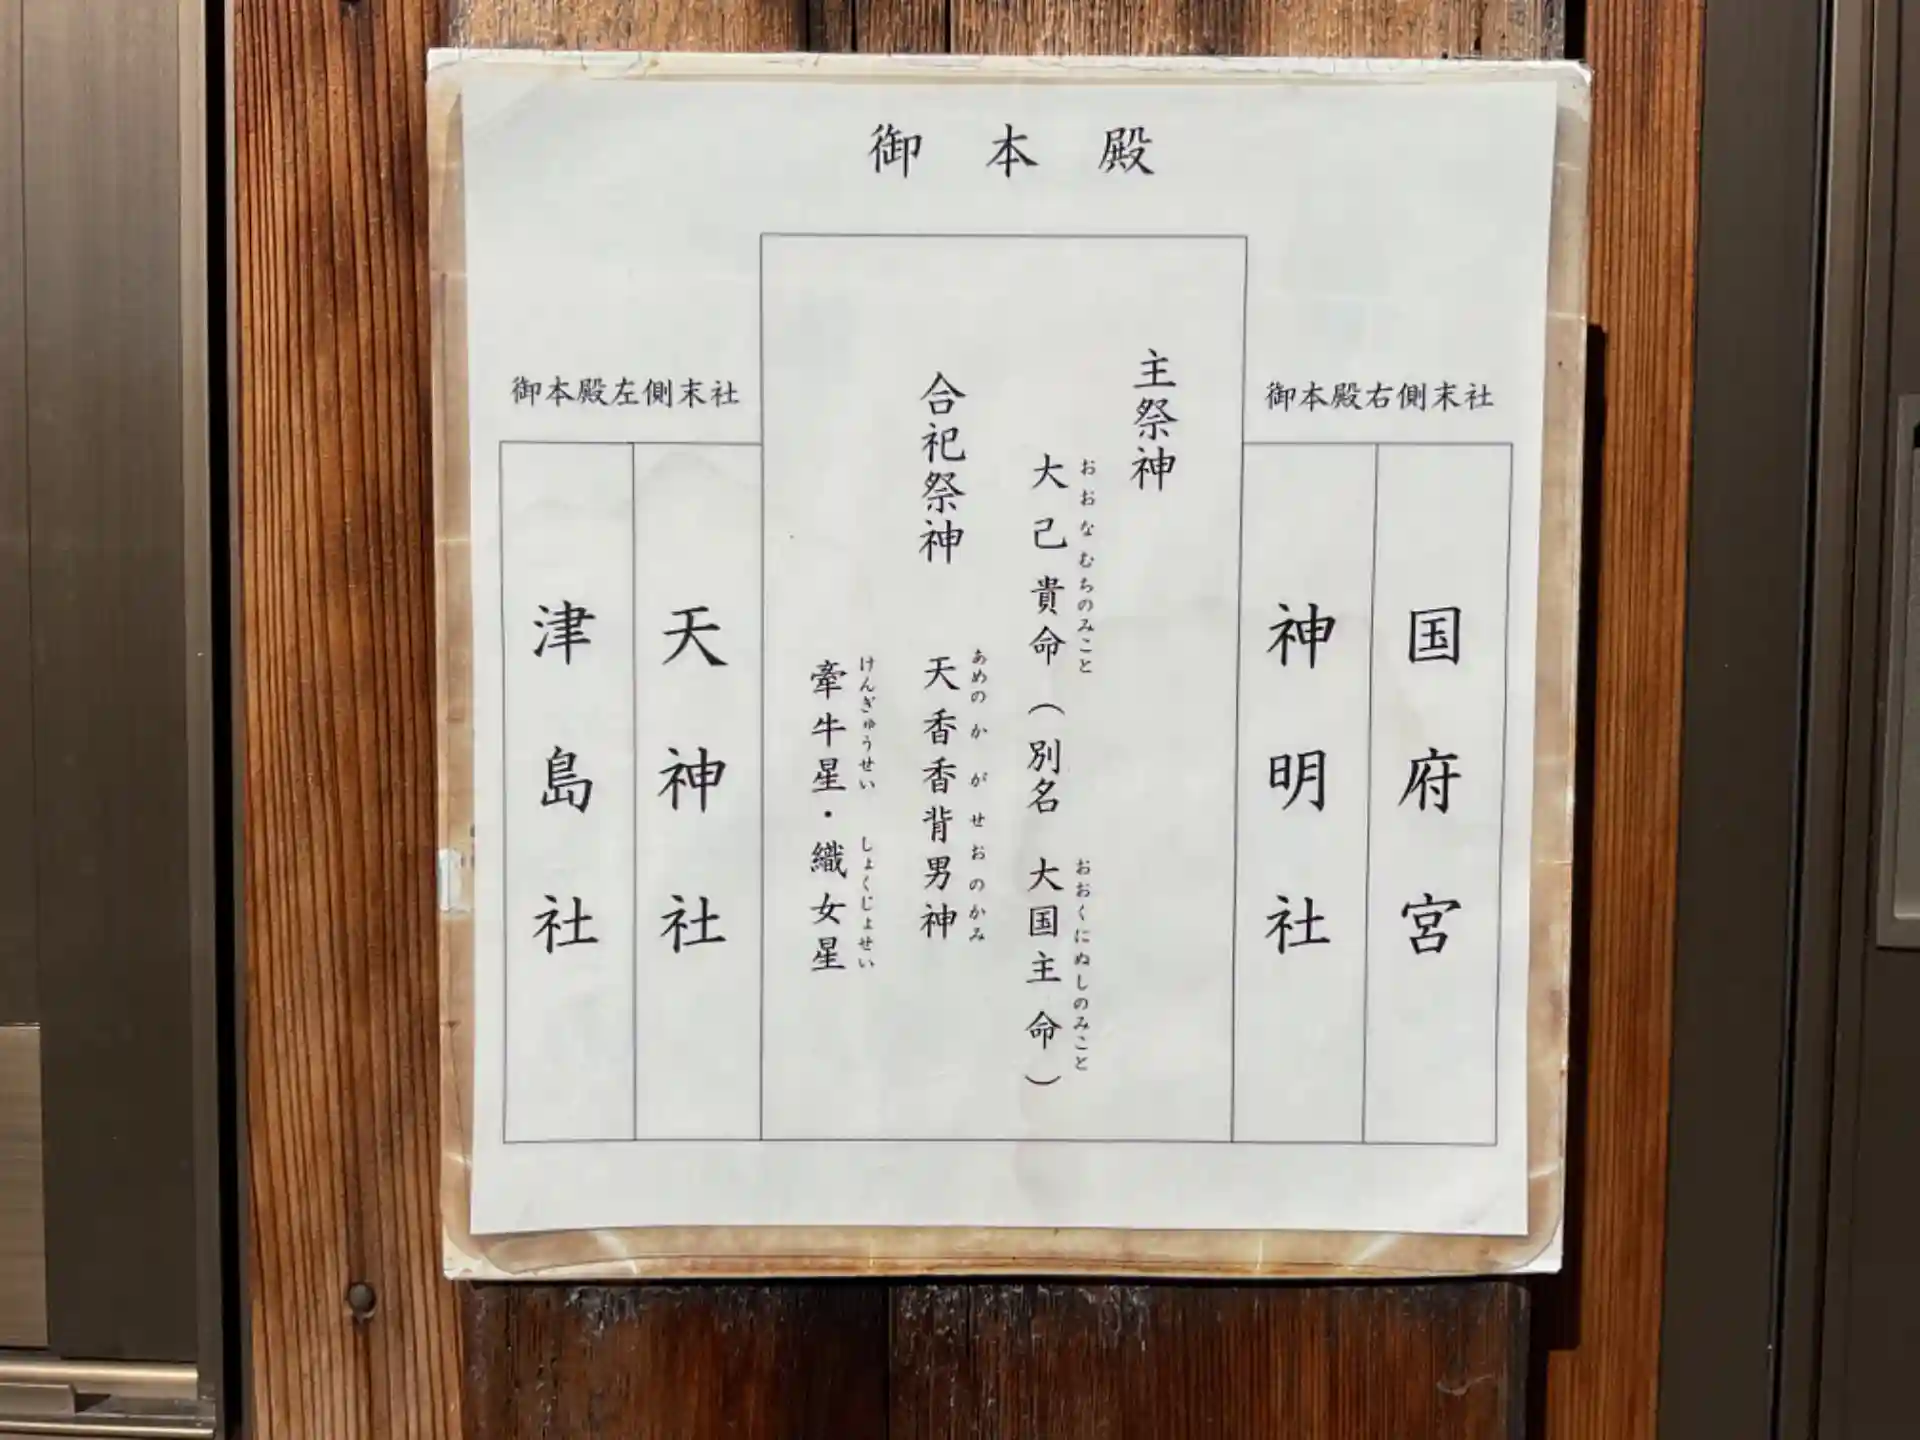 御本殿
御本殿右側末社
国府宮
神明社
主祭神
おおなむちのみこと
大己貴命（別名 大国主命）
おおくにぬしのみこと
合祀祭神
あめのかがせおのかみ
天香香背男神
けんぎゅうせい しょくじょせい
牽牛星・織女星
御本殿左側末社
天神社
津島社